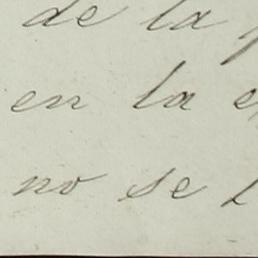 de la
en la
no se